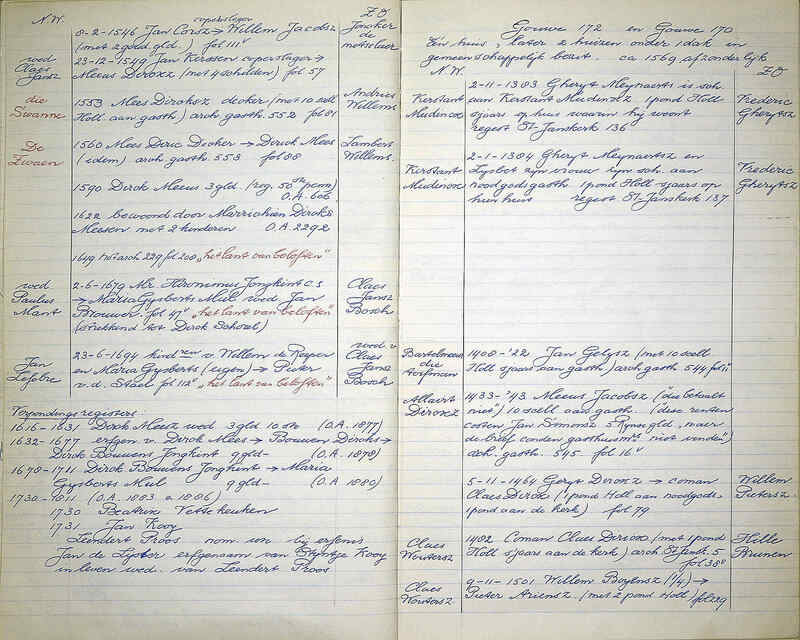 N.W.
Z.O
koperslager
8-2-1546 Jan Corsz → Willem Jacobsz
(met 2 goud gld.) fol 111v
Joncker
de
metselaer
wed
Claes
Jansz
23-12-1549 Jan Kerssen coperslager →
Meeus Dircxz (met 4 schilden) fol 57
die
Swanne
1553 Mees Dircksz decker (met 10 scell
Holl. aan gasth.) arch gasth. 552 fol 81
Andries
Willems.
De
Zwaen
1560 Mees Diric Decker → Dirck Mees
(idem) arch gasth 553 fol 88
Lambert
Willems.
1590 Dirck Meeus 3 gld. (reg. 50ste penn)
O.A. 606.
1622 bewoond door Marrichien Dircks
Meesen met 2 kinderen O.A. 2292
1649 not. arch 229 fol 200 „het lant van beloften"
wed
Paulus
Mant
2-6-1679 Mr. Hieronimus Jongkint c.s
→ Maria Gysberts Miel wed Jan
Brouwer. fol 47v „het lant van beloften"
(strekkend tot Dirck Schoel)
Claes
Jansz
Bosch
Jan
Lefebre
23-6-1694 kindren v. Willem de Reyper
en Maria Gysberts (eigen) → Pieter
v.d. Stael fol 112v „het lant van beloften"
wed. v
Claes
Jans
Bosch
Verpondingsregisters:
1616-1631 Dirck Meesz wed 3 gld 10 st (O.A. 1877)
1632-1677 erfgen. v. Dirck Mees → Bouwen Dircks →
Dirck Bouwens Jongkint 9 gld- (O.A. 1878)
1678-1711 Dirck Bouwens Jongkint → Maria
Gysberts Miel 9 gld- (O.A 1880)
1730-1811 (O.A. 1883 a 1886)
1730 Beatrix Vetteheuken
1731 Jan Kooy
Leendert Proos nom. ux. bij erfenis
Jan de Lyster erfgenaam van Styntje Kooy
in leven wed. van Leendert Proos
Gouwe 172 en Gouwe 170
Eén huis, later 2 huizen onder 1 dak in
gemeenschappelijk bezit. ca 1569 afzonderlijk
N.W.
Z.O
Kerstant
Mudincx
2-11-1383 Gheryt Meynaerts is sch.
aan Kerstant Mudincx 1 pond Holl
sjaars op huis waarin hij woont
regest St-Janskerk 136
Frederic
Gherytsz
Kerstant
Mudincx
2-1-1384 Gheryt Meynaertsz en
Lysbet zijn vrouw zijn sch. aan
noodgodsgasth 1 pond Holl sjaars op
hun huis regest St-Janskerk 137
Frederic
Gherytsz
Bartelmeeus
die
1408-'22 Jan Gelysz (met 10 scell
Holl sjaars aan gasth) arch gasth 544 fol 11
Allaert
Dircxz
1433-'43 Meeus Jacobsz ("die betaelt
niet") 10 scell aan gasth. (dese renten
costen Jan Simonsz 5 Rynsgld „maer
de brief conden gasthuismrs niet vinden")
arch. gasth. 545 fol 16v
5-11-1464 Geryt Dircxz → coman
Claes Dircx (1 pond Holl aan noodgods-
1 pond aan de kerk) fol 79
Willem
Pietersz.
Claes
Woutersz
1482 Coman Claes Dircxx (met 1 pond
Holl sjaars aan de kerk) arch St Jansk. 5
fol 38v
Hille
Brunen
Claes
Woutersz
9-11-1501 Willem Boyensz (1/4) →
Pieter Ariensz. (met 2 pond Holl) fol 229